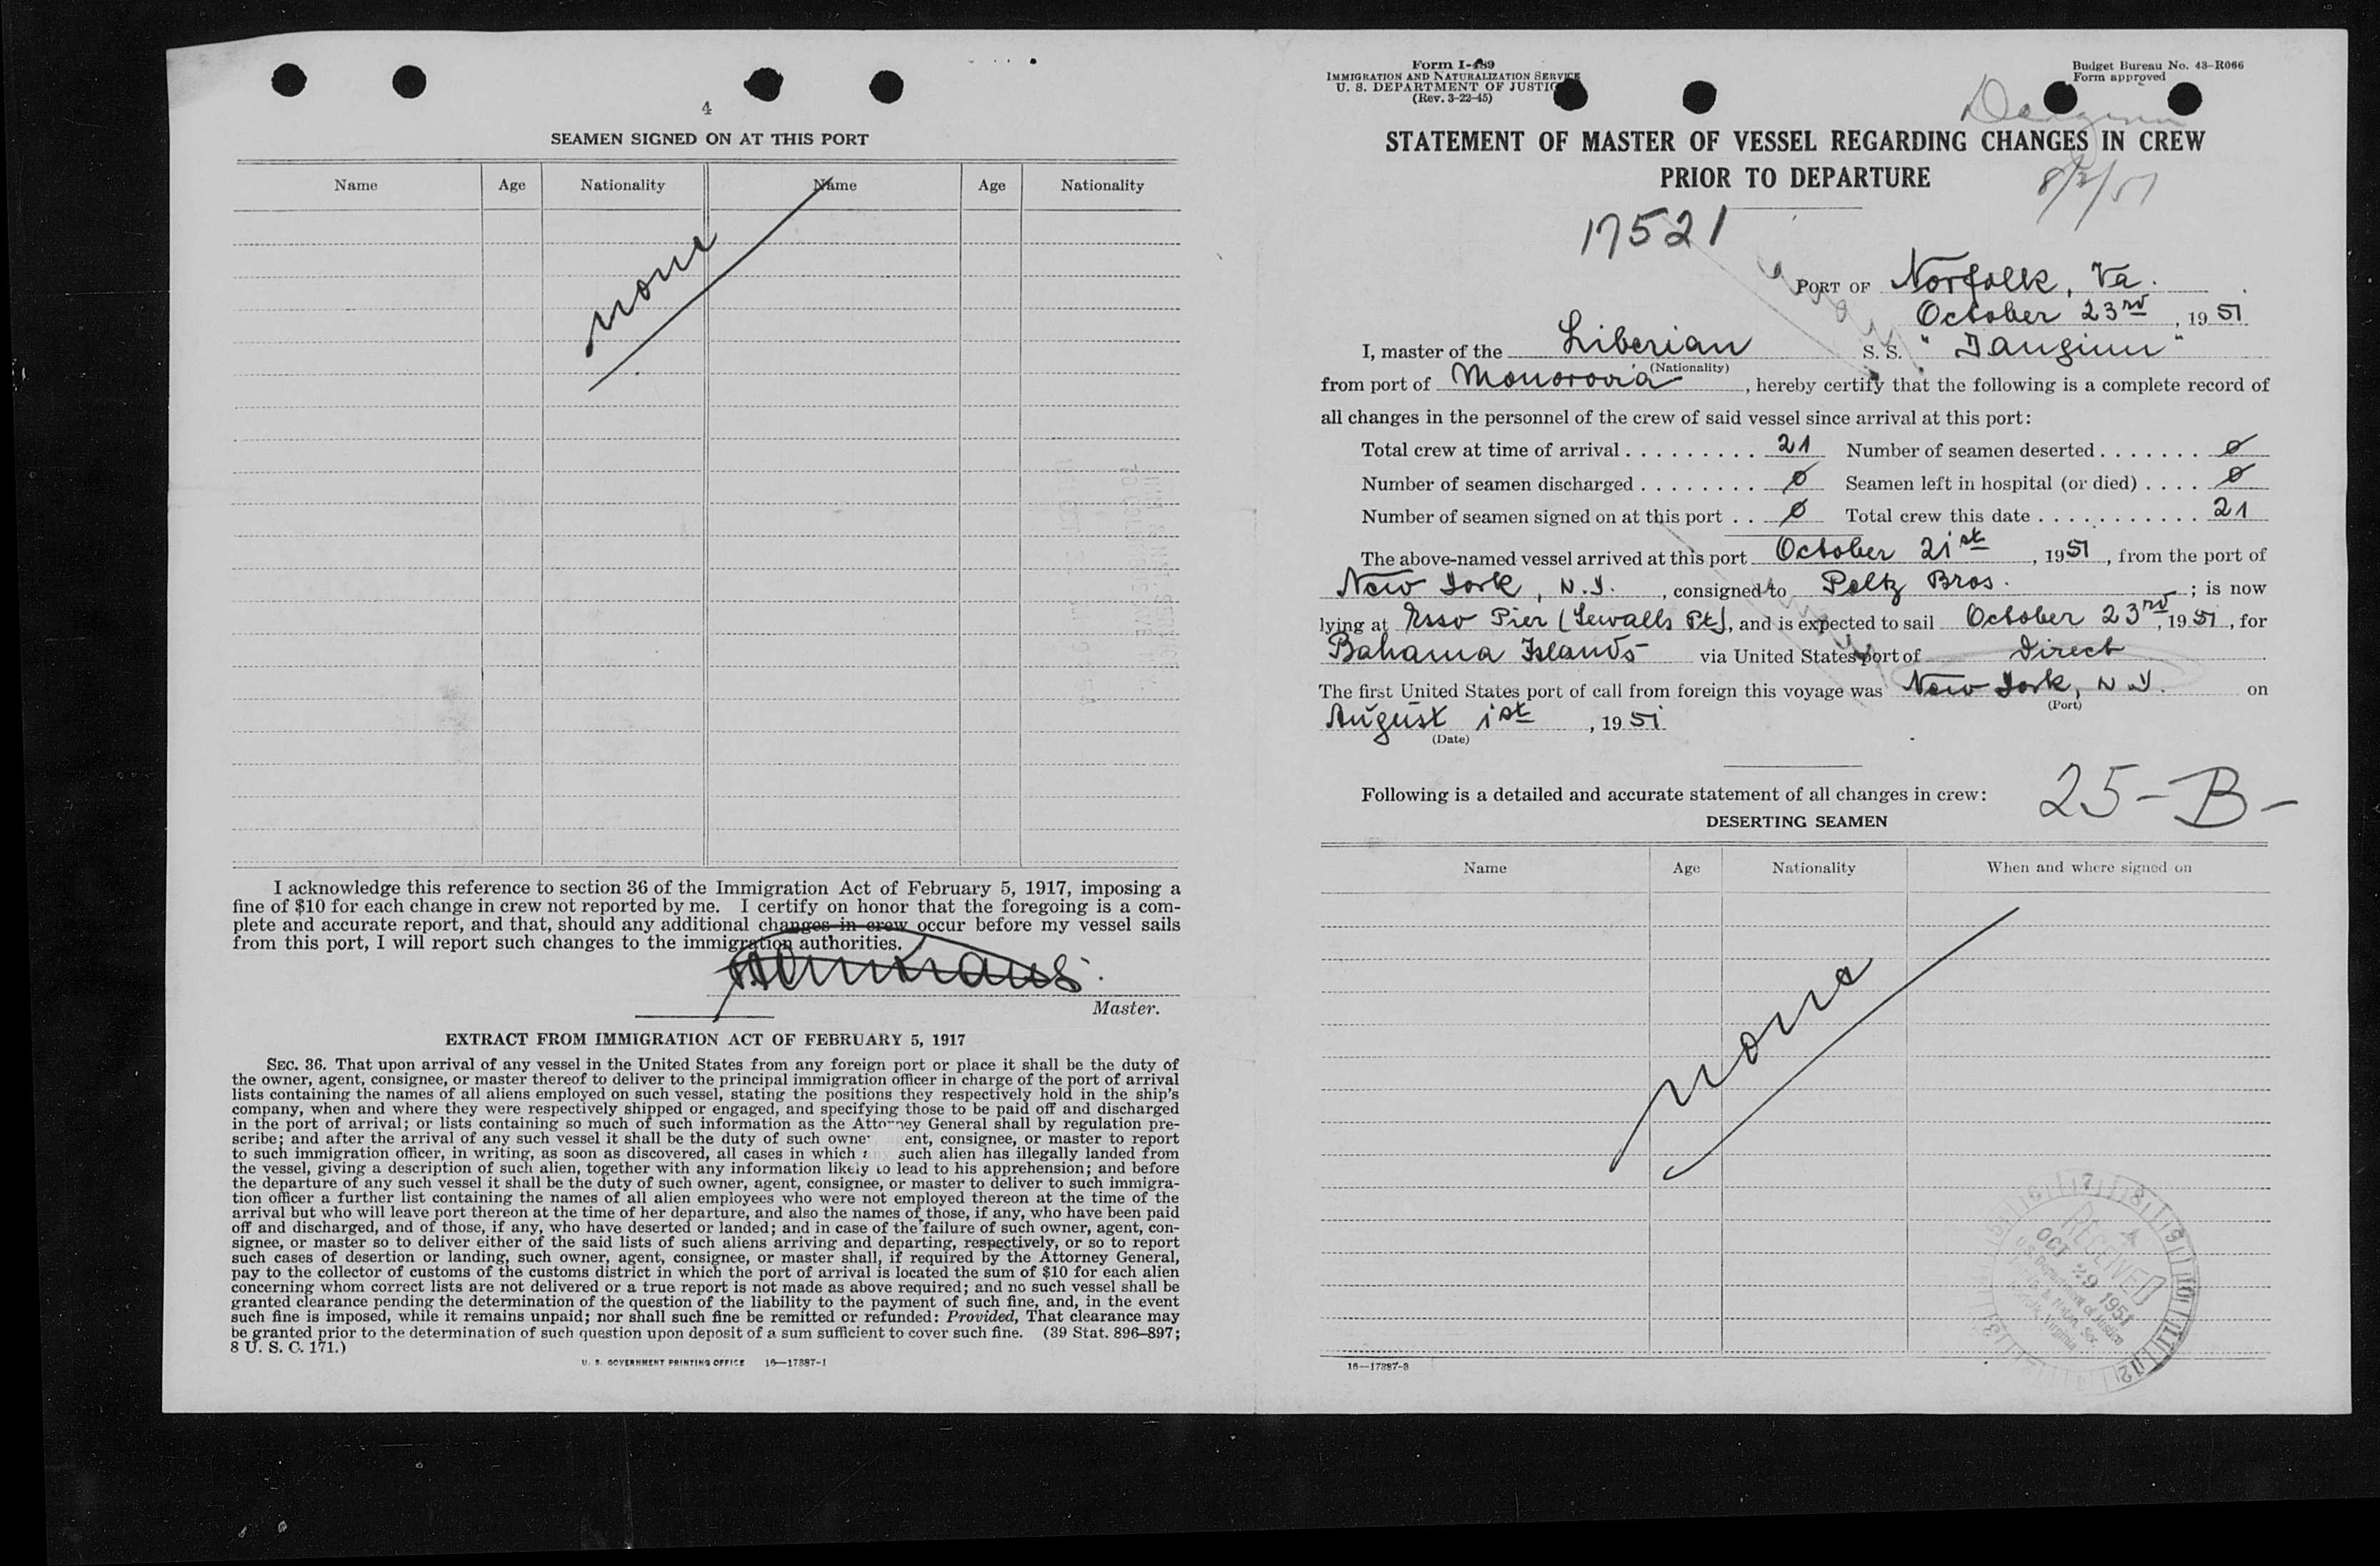 4
SEAMEN SIGNED ON AT THIS PORT
Name Age Nationality Name Age Nationality
none
I acknowledge this reference to section 36 of the Immigration Act of February 5, 1917, imposing a
fine of $10 for each change in crew not reported by me. I certify on honor that the foregoing is a com-
plete and accurate report, and that, should any additional changes in crew occur before my vessel sails
from this port, I will report such changes to the immigration authorities.
Master.
EXTRACT FROM IMMIGRATION ACT OF FEBRUARY 5, 1917
SEC. 36. That upon arrival of any vessel in the United States from any foreign port or place it shall be the duty of
the owner, agent, consignee, or master thereof to deliver to the principal immigration officer in charge of the port of arrival
lists containing the names of all aliens employed on such vessel, stating the positions they respectively hold in the ship's
company, when and where they were respectively shipped or engaged, and specifying those to be paid off and discharged
in the port of arrival; or lists containing so much of such information as the Attorney General shall by regulation pre-
scribe; and after the arrival of any such vessel it shall be the duty of such owner, agent, consignee, or master to report
to such immigration officer, in writing, as soon as discovered, all cases in which any such alien has illegally landed from
the vessel, giving a description of such alien, together with any information likely to lead to his apprehension; and before
the departure of any such vessel it shall be the duty of such owner, agent, consignee, or master to deliver to such immigra-
tion officer a further list containing the names of all alien employees who were not employed thereon at the time of the
arrival but who will leave port thereon at the time of her departure, and also the names of those, if any, who have been paid
off and discharged, and of those, if any, who have deserted or landed; and in case of the failure of such owner, agent, con-
signee, or master so to deliver either of the said lists of such aliens arriving and departing, respectively, or so to report
such cases of desertion or landing, such owner, agent, consignee, or master shall, if required by the Attorney General,
pay to the collector of customs of the customs district in which the port of arrival is located the sum of $10 for each alien
concerning whom correct lists are not delivered or a true report is not made as above required; and no such vessel shall be
granted clearance pending the determination of the question of the liability to the payment of such fine, and, in the event
such fine is imposed, while it remains unpaid; nor shall such fine be remitted or refunded: Provided, That clearance may
be granted prior to the determination of such question upon deposit of a sum sufficient to cover such fine. (39 Stat. 896–897;
8 U. S. C. 171.)
U. S. GOVERNMENT PRINTING OFFICE 16—17887-1
Form I-489
IMMIGRATION AND NATURALIZATION SERVICE
U. S. DEPARTMENT OF JUSTICE
(Rev. 3-22-45)
Budget Bureau No. 43-R066
Form approved
STATEMENT OF MASTER OF VESSEL REGARDING CHANGES IN CREW
PRIOR TO DEPARTURE
17521
PORT OF Norfolk, Va.
October 23rd, 1951
I, master of the Liberian S. S. "Janginn"
(Nationality)
from port of Monorovia, hereby certify that the following is a complete record of
all changes in the personnel of the crew of said vessel since arrival at this port:
Total crew at time of arrival . . . . . . . . . 21 Number of seamen deserted . . . . . . . ø
Number of seamen discharged . . . . . . . . ø Seamen left in hospital (or died) . . . . ø
Number of seamen signed on at this port . . ø Total crew this date . . . . . . . . . . . 21
The above-named vessel arrived at this port October 21st, 1951, from the port of
New York, N.Y., consigned to Peltz Bros. ; is now
lying at Esso Pier (Sewalls Pt), and is expected to sail October 23rd, 1951, for
Bahama Islands via United States port of Direct
The first United States port of call from foreign this voyage was New York, N.Y. on
(Port)
August 1st, 1951
(Date)
Following is a detailed and accurate statement of all changes in crew:
25-B-
DESERTING SEAMEN
Name Age Nationality When and where signed on
none
RECEIVED
OCT 29 1951
U.S. Department of Justice
16—17887-3